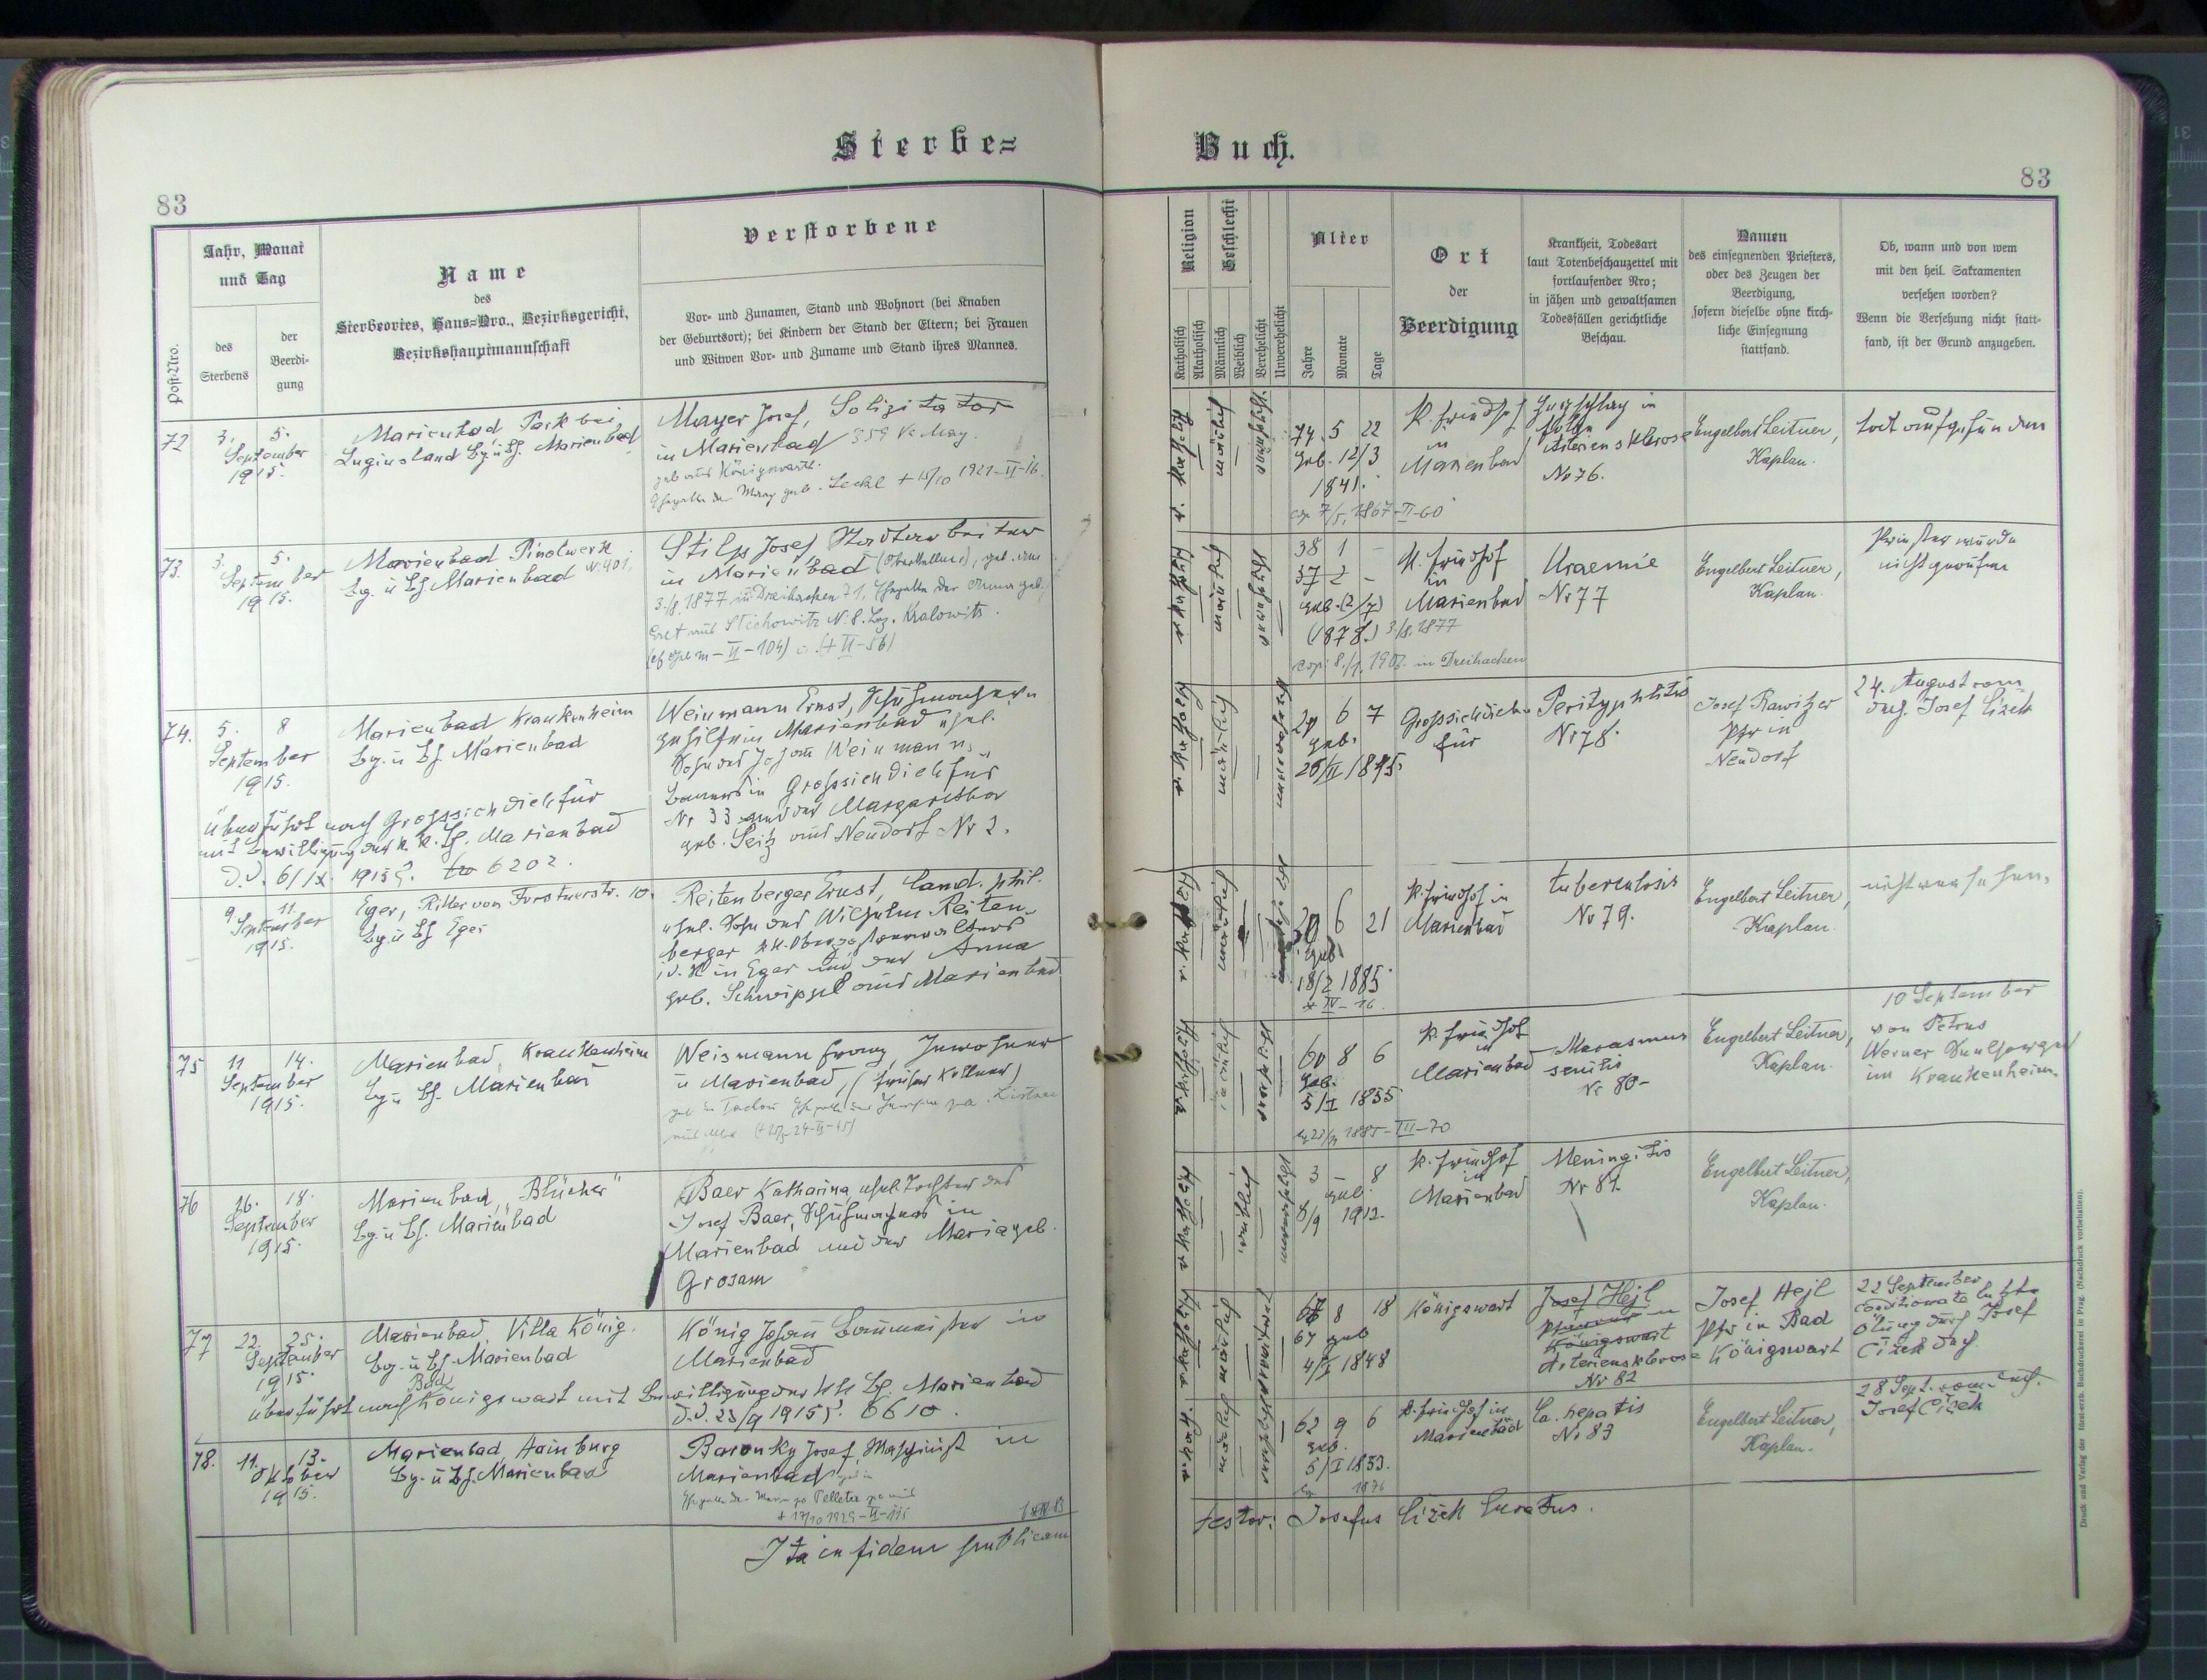 Sterbe=
Buch.
83
83
Post-Nro.
Jahr, Monat
und Tag
des
Sterbens
der
Beerdi-
gung
Name
des
Sterbeortes, Haus-Nro., Bezirksgericht,
Bezirkshauptmannschaft
Verstorbene
Vor- und Zunamen, Stand und Wohnort (bei Knaben
der Geburtsort); bei Kindern der Stand der Eltern; bei Frauen
und Witwen Vor- und Zuname und Stand ihres Mannes.
Religion
Katholisch
Akatholisch
Geschlecht
Männlich
Weiblich
Verehelicht
Unverehelicht
Alter
Jahre
Monate
Tage
Ort
der
Beerdigung
Krankheit, Todesart
laut Totenbeschauzettel mit
fortlaufender Nro;
in jähen und gewaltsamen
Todesfällen gerichtliche
Beschau.
Namen
des einsegnenden Priesters,
oder des Zeugen der
Beerdigung,
sofern dieselbe ohne kirch-
liche Einsegnung
stattfand.
Ob, wann und von wem
mit den heil. Sakramenten
versehen worden?
Wenn die Versehung nicht statt-
fand, ist der Grund anzugeben.
72
3. 5.
September
1915.
Marienbad Park bei
Luginsland Bg. u Bh. Marienbad
Mayer Josef, Solizitator
in Marienbad
geb. aus Königswarth.
+ 15/10 1921-II-16.
r. kath.
männlich
74 5 22
geb. 12/3
1841.
cop. 7/5, 1867-II-60
k. Friedhof
in
Marienbad
Arteriensklerose
No 76.
Engelbert Leitner,
Kaplan.
tot aufgefunden
73.
3. 5.
September
1915.
Marienbad Pinolwerk
Bg. u Bh Marienbad N. 401,
Stilp Josef Stadtarbeiter
in Marienbad (Oberkellner), geb. am
3./8. 1877 in Dreihacken 71, Ehegatte der Anna geb.
aus Stichowitz N. 8. Bez. Kralowitz.
männlich
38 1 -
37 2 -
geb. (2/7)
(1878.) 3./8. 1877
in Dreihacken
k. Friedhof
in
Marienbad
Uraemie
Nr 77
Engelbert Leitner,
Kaplan.
Priester wurde
nicht gerufen
74.
5. 8
September
1915.
Marienbad Krankenheim
Bg. u Bh. Marienbad
überführt nach Grosssichdichfür
mit Bewilligung der k. k. Bh. Marienbad
d. d. 6/IX. 1915 Z. 6202.
Weinmann Ernst, Schuhmacher-
gehilfe in Marienbad ehel.
Sohn des Johann Weinmann,
Bauers in Grosssichdichfür
Nr 33 und der Margaretha
geb. Seitz aus Neudorf Nr 2.
männlich
6 7
geb.
Grosssichdich-
für
Perityphlitis
Nr 78.
Josef Rawitzer
Pfr in
Neudorf
24. August vom
Josef Cizek
9. 11.
September
1915.
Eger, Ritter von Forstnerstr. 10.
Bg. u Bh Eger
Reitenberger Ernst, Cand. phil.
ehel. Sohn des Wilhelm Reiten-
berger
in Eger und der Anna
geb. Schwipzel aus Marienbad
männlich
30 6 21
geb.
18/2 1885.
k. Friedhof in
Marienbad
Tuberculosis
No 79.
Engelbert Leitner,
Kaplan.
nicht versehen.
75
11 14.
September
1915.
Marienbad, Krankenheim
Bg. u Bh. Marienbad
Weismann Franz, Inwohner
in Marienbad, (früher Kellner)
männlich
60 8 6
geb.
5/I 1855.
k. Friedhof
in
Marienbad
Marasmus
senilis
Nr 80-
Engelbert Leitner,
Kaplan.
10 September
von Petrus
Werner Seelsorger
im Krankenheim.
76
16. 18.
September
1915.
Marienbad, "Blücher"
Bg. u Bh. Marienbad
Baer Katharina, ehel. Tochter des
Josef Baer, Schuhmachers in
Marienbad und der Maria geb.
Grosam
weiblich
3 - 8
geb.
8/9 1912.
k. Friedhof
in
Marienbad
Meningitis
Nr 81.
Engelbert Leitner,
Kaplan.
77
22. 25.
September
1915.
Marienbad, Villa König.
Bg. u Bh. Marienbad
Bad
überführt nach Königswart mit Bewilligung der k k Bh. Marienbad
d. d. 23/9 1915 Z. 6610.
König Johann Baumeister in
Marienbad
männlich
67 8 18
67 geb
4/I 1848
Königswart
Josef Hejl
Pfarrer in
Königswart
Arteriensklerose
Nr 82
Josef Hejl
Pfr in Bad
Königswart
22 September
conditionate letzte
Ölung durch Josef
Cizek
78.
11. 13.
Oktober
1915.
Marienbad, Hainburg
Bg. u Bh. Marienbad
Baronky Josef, Maschinist in
Marienbad
+ 17/10 1929-II-115
männlich
62 9 6
geb.
5/I 1853.
1876
k. Friedhof in
Marienbad
Ca. hepatis
Nr 83
Engelbert Leitner,
Kaplan.
28 Sept. vom
Josef Cizek
Ita in fidem publicam
testor: Josefus Cizek Curatus.